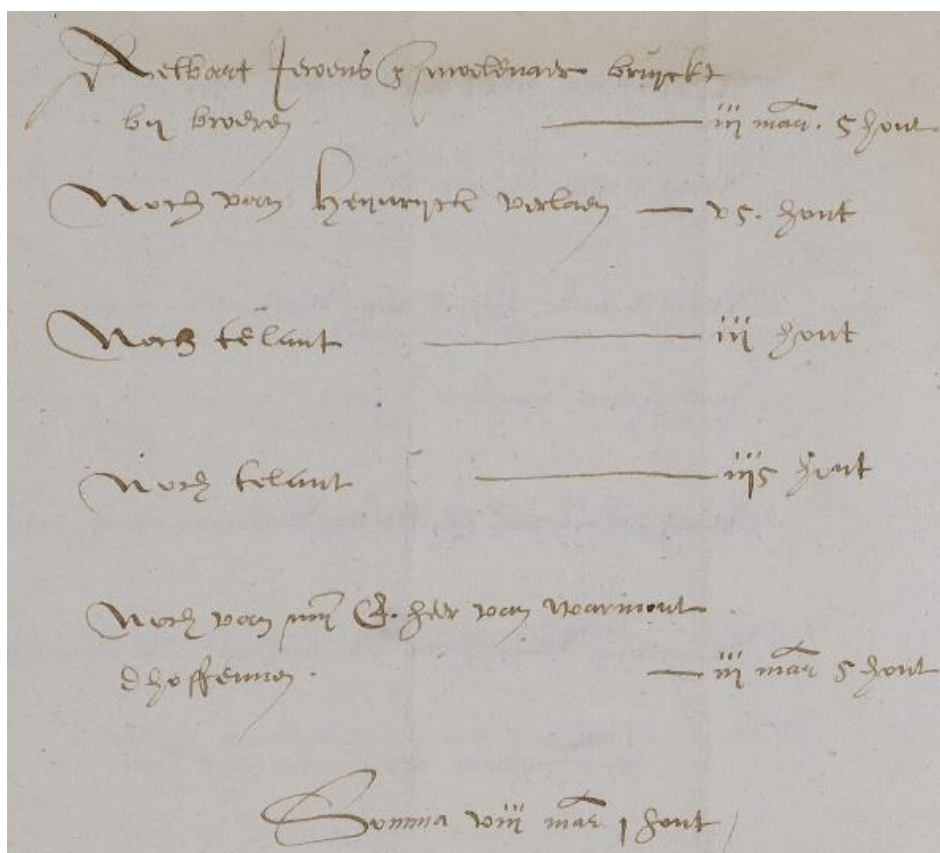 Aelbaert Jeroensz moelenaer bruyckt
bij broeren — iij mar. s hont
Noch van Heynryck verlaen — vs. hont
Noch telant — iij hont
Noch telant — iijs hont
Noch van mijn E. heer van Warmont
dhoffennen. — iij mar s hont
Somma viij mar j hont